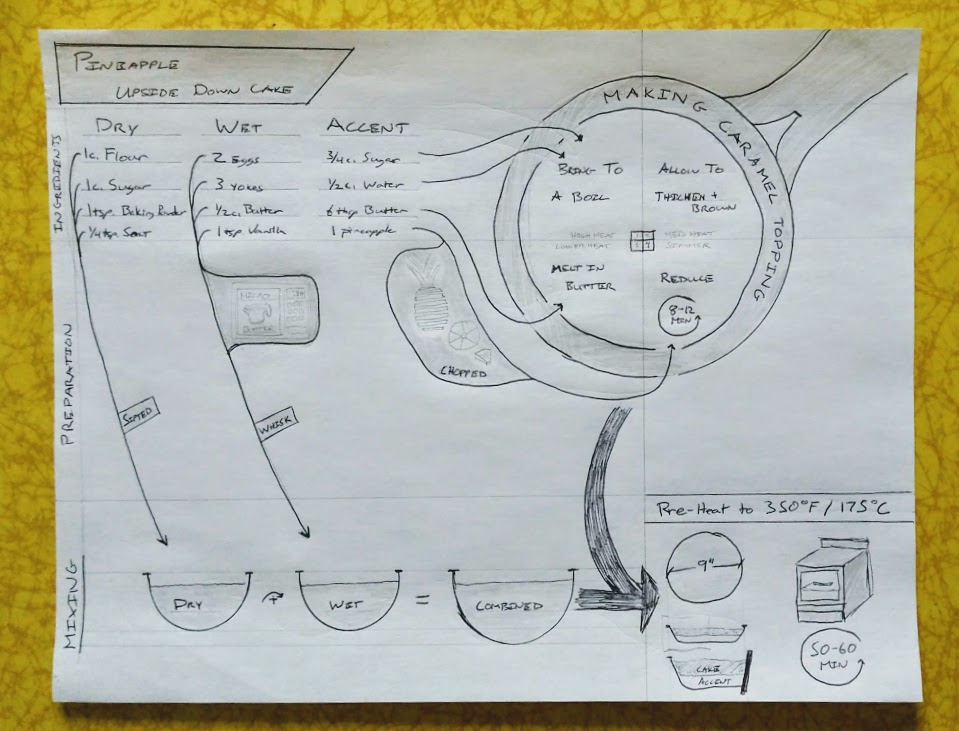 PINEAPPLE
UPSIDE DOWN CAKE
INGREDIENTS
DRY
1c. Flour
1c. Sugar
1tsp. Baking Powder
1/4 tsp Salt
WET
2 Eggs
3 Yokes
1/2 c. Butter
1 tsp Vanilla
ACCENT
3/4 c. Sugar
1/2 c. Water
6 tbsp Butter
1 pineapple
MAKING CARAMEL TOPPING
BRING TO
A BOIL
ALLOW TO
THICKEN +
BROWN
HIGH HEAT
LOWER HEAT
MED HEAT
SIMMER
MELT IN
BUTTER
REDUCE
8-12
MIN
PREPARATION
MICRO
BUTTER
CHOPPED
SIFTED
WHISK
MIXING
DRY
+
WET
=
COMBINED
Pre-Heat to 350°F / 175°C
9"
CAKE
ACCENT
50-60
MIN